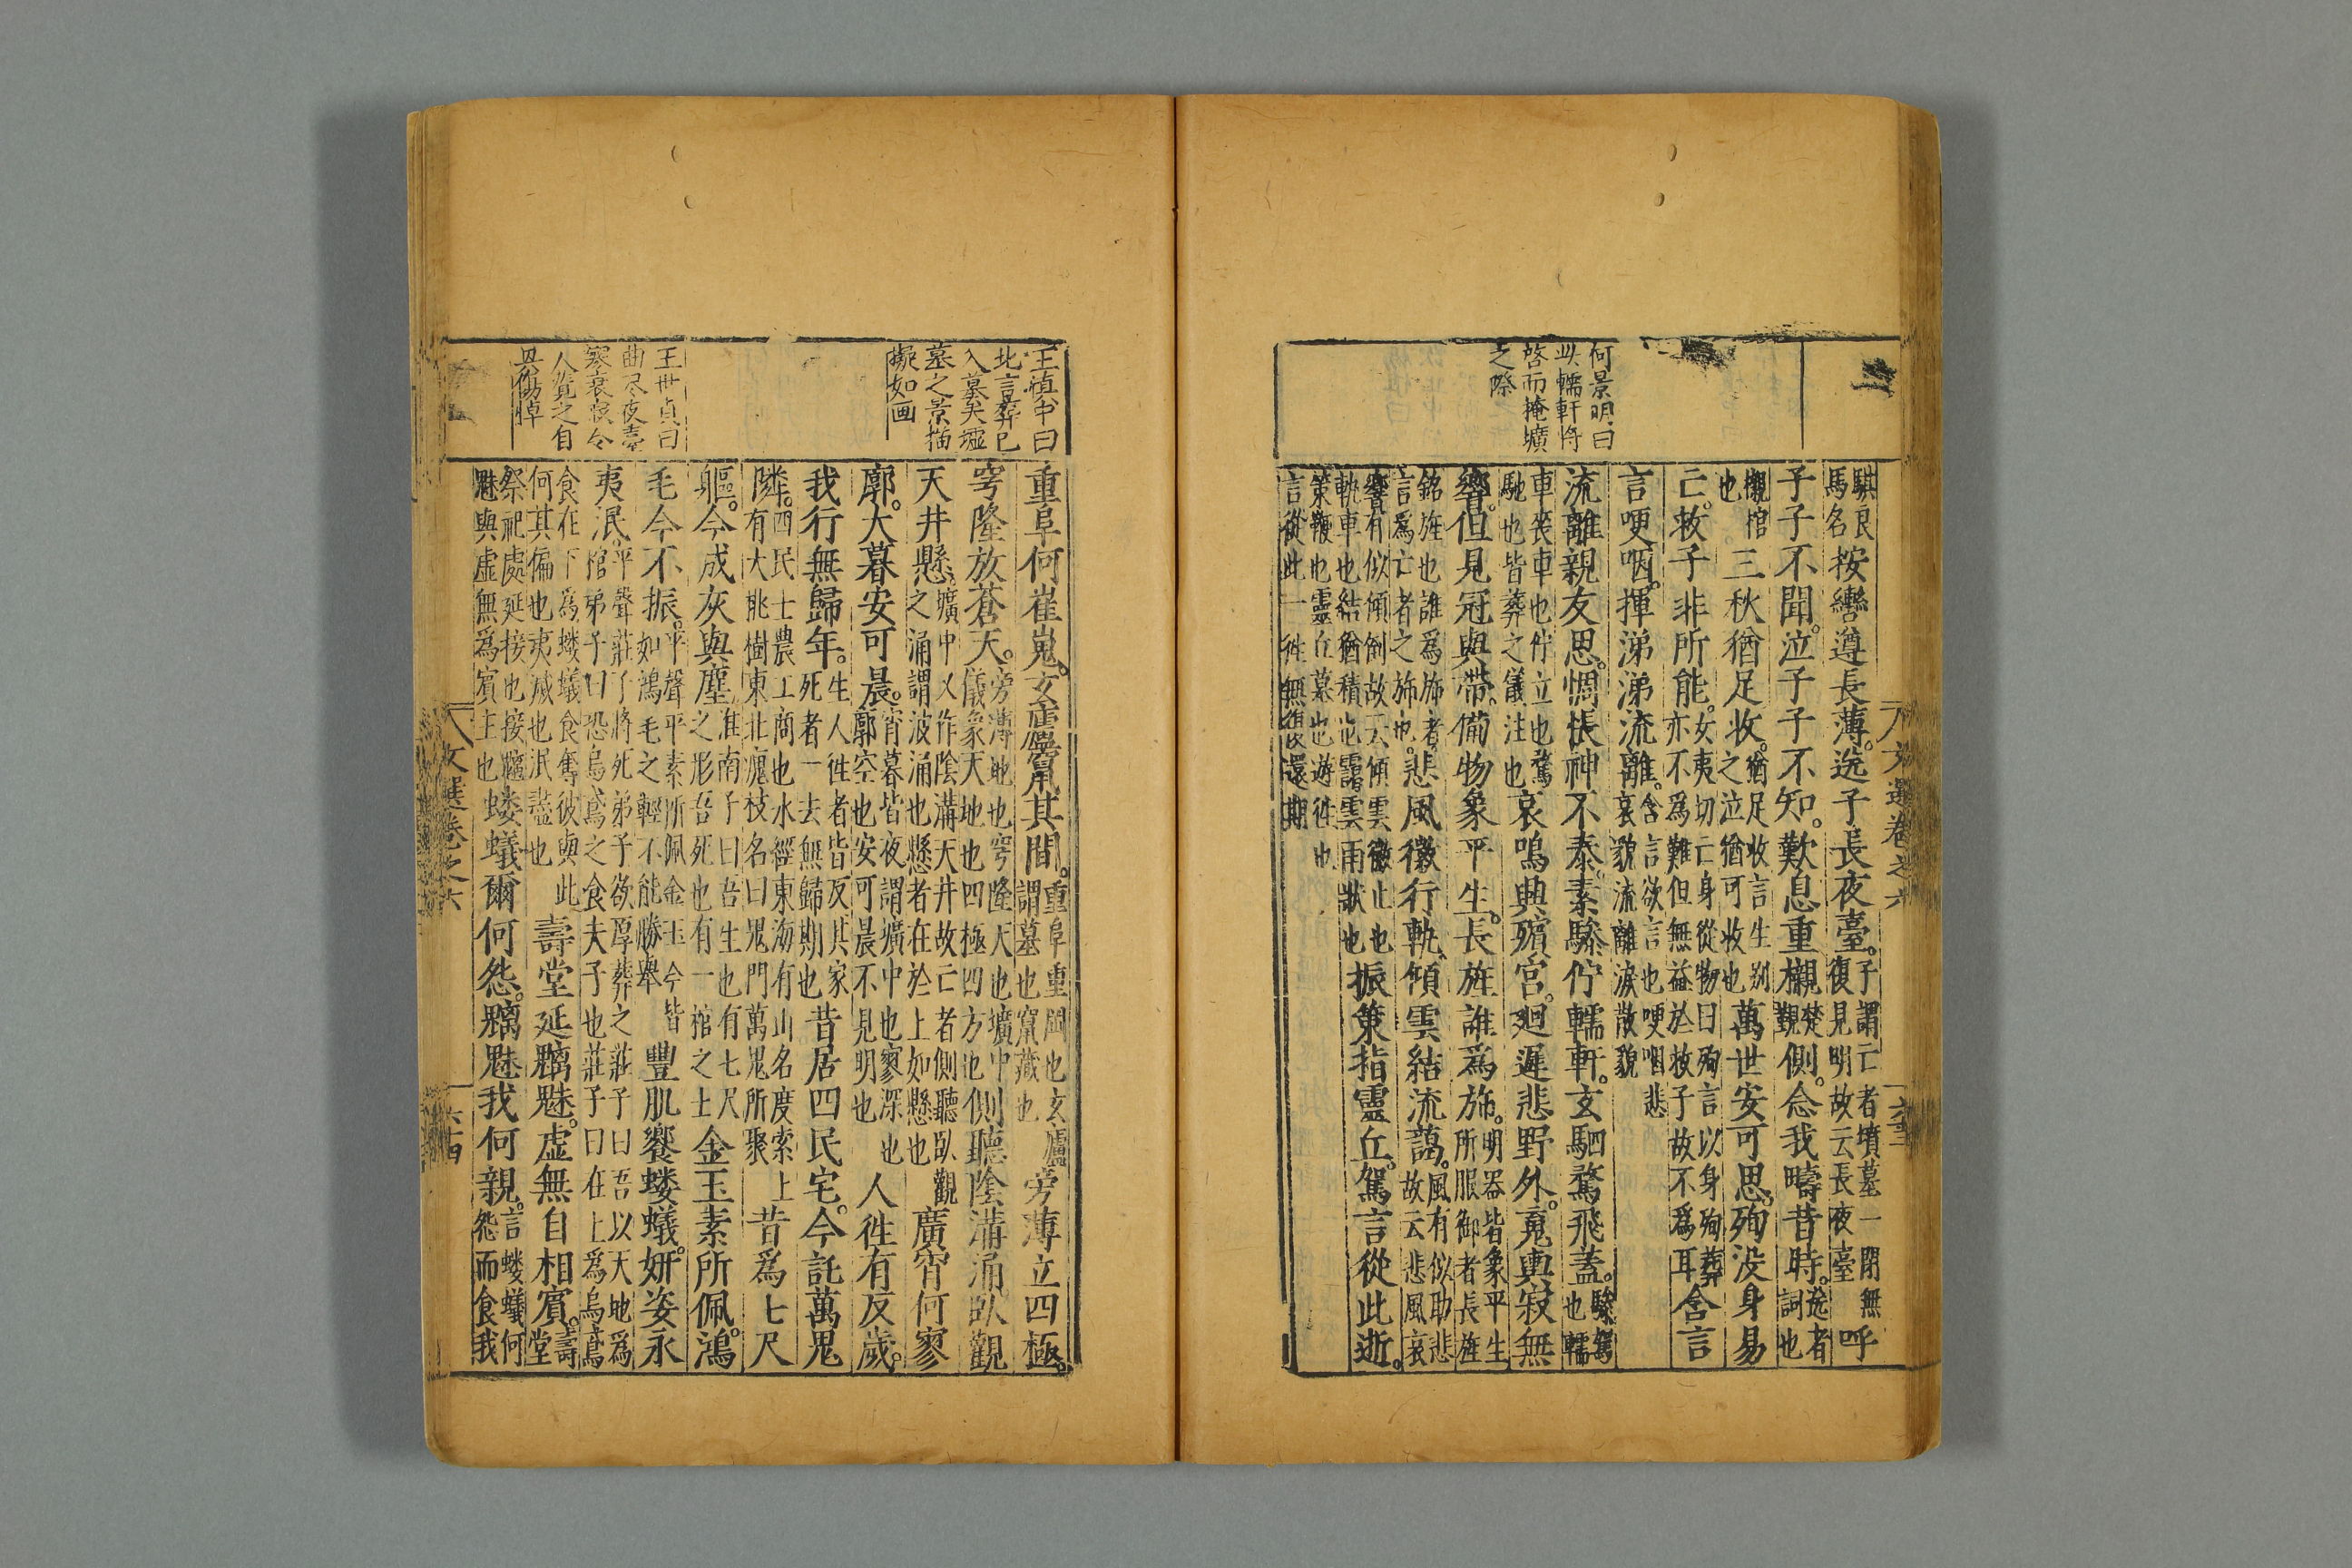 何景明曰
此轜軒将
啓而掩壙
之際
騏良馬名按轡遵長薄。送子長夜臺。子謂亡者墳墓一閉無復見明故云長夜臺呼
子子不聞。泣子子不知。歎息重櫬楚覲側。念我疇昔時。送者詞也
櫬棺也三秋猶足收。猶足收言生别之泣猶可收也萬世安可思。殉没身易
亡。救子非所能。女夷切亡身從物曰殉言以身殉葬亦不爲難但無益於救子故不爲耳含言
言哽咽。揮涕涕流離。含言欲言也哽咽悲哀貌流離淚散貌
流離親友思。惆悵神不泰。素驂佇轜軒。玄駟騖飛蓋。驂駕也轜
車喪車也佇立也騖馳也皆葬之儀注也哀鳴興殯宫。廻遲悲野外。䰟輿寂無
響。但見冠與帶。備物象平生。長旌誰爲旆。明器皆象平生所服御者長旌
銘旌也誰爲旆者言爲亡者之旆也。悲風徽行軌。傾雲結流藹。風有似助悲故云悲風哀
響有似傾倒故云傾雲徽止也軌車也結猶積也靄雲雨狀也振策指靈丘。駕言從此逝。
策鞭也靈丘墓也遊徃也言從此一徃無復還期
文選卷之六
王慎中曰
此言葬已
入墓矣壙
墓之景描
擬如画
王世貞曰
曲尽夜臺
寒衰寂令
人覽之自
與傷悼
重阜何崔嵬。玄廬竁其間。重阜重岡也玄廬謂墓也竄藏也旁薄立四極。
穹隆放蒼天。旁薄地也穹隆天也壙中儀象天地也四極四方也側聽陰溝涌。臥觀
天井懸。壙中又作陰溝天井故亡者側聽臥觀之涌謂波涌也懸者在於上如懸也廣宵何寥
廓。大暮安可晨。宵暮皆夜謂壙中也寥深也廓空也安可晨不見明也人徃有反歲。
我行無歸年。生人徃者皆反其家死者一去無歸期也昔居四民宅。今託萬鬼
隣。四民士農工商也水經東海有山名度索上有大桃樹東北瘣枝名曰鬼門萬鬼所聚昔爲七尺
軀。今成灰與塵。淮南子曰吾生也有七尺之形吾死也有一棺之士金玉素所佩。鴻
毛今不振。平聲平素所佩金玉今皆如鴻毛之輕不能勝舉豐肌饗螻蟻。妍姿永
夷泯。平聲莊子將死弟子欲厚葬之莊子曰吾以天地爲棺弟子曰恐烏鳶之食夫子也莊子曰在上爲烏鳶
食在下爲螻蟻食奪彼與此何其偏也夷滅也泯盡也壽堂延魑魅。虚無自相賓。壽堂
祭祀處延接也接魑魅與虚無爲賓主也螻蟻爾何怨。魑魅我何親。言螻蟻何怨而食我
文選卷之六
六十四